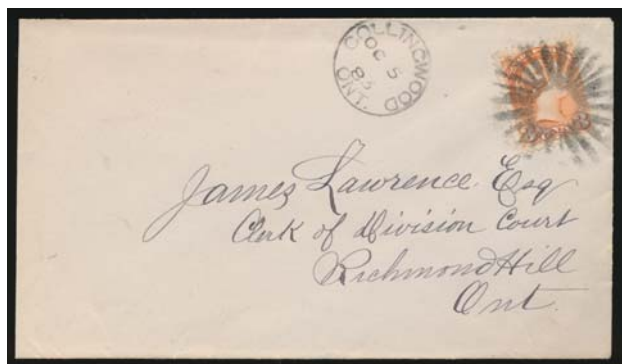 COLLINGWOOD
OC 5
ONT.
James Lawrence Esq
Clerk of Division Court
Richmond Hill
Ont.